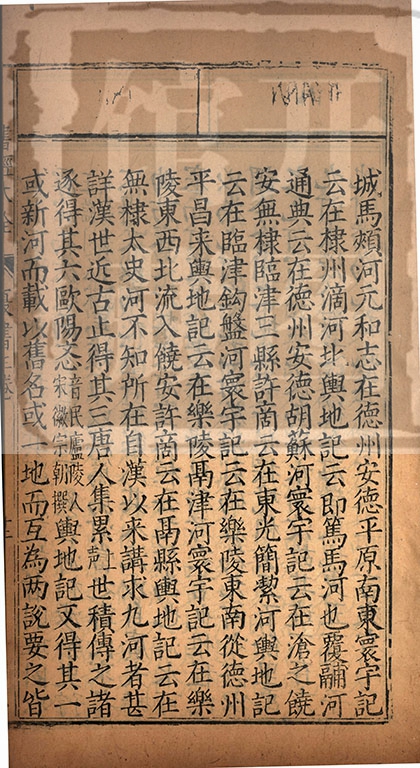 城馬頰河元和志在德州安德平原南東寰宇記
云在棣州滴河北輿地記云即篤馬河也覆鬴河
通典云在德州安德胡蘇河寰宇記云在滄之饒
安無棣臨津三縣許商云在東光簡絜河輿地記
云在臨津鈎盤河寰宇記云在樂陵東南從德州
平昌来輿地記云在樂陵鬲津河寰宇記云在樂
陵東西北流入饒安許商云在鬲縣輿地記云在
無棣太史河不知所在自漢以来講求九河者甚
詳漢世近古止得其三唐人集累上聲世積傳之諸
逐得其六歐陽忞音民廬陵人宋徽宗朝撰輿地記又得其一
或新河而載以舊名或一地而互為两說要之皆
書經大全